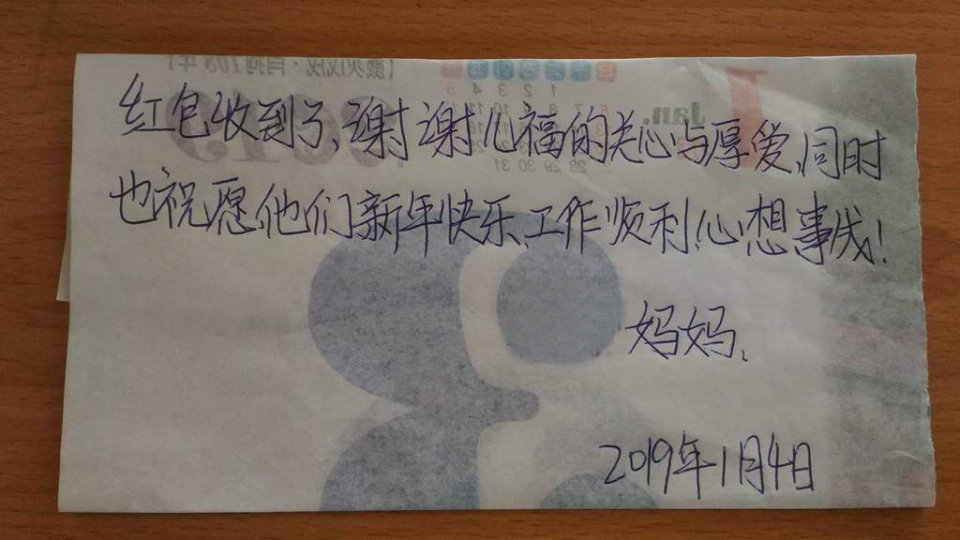 红包收到了、谢谢儿福的关心与厚爱、同时
也祝愿他们新年快乐、工作顺利、心想事成！
妈妈、
2019年1月4日